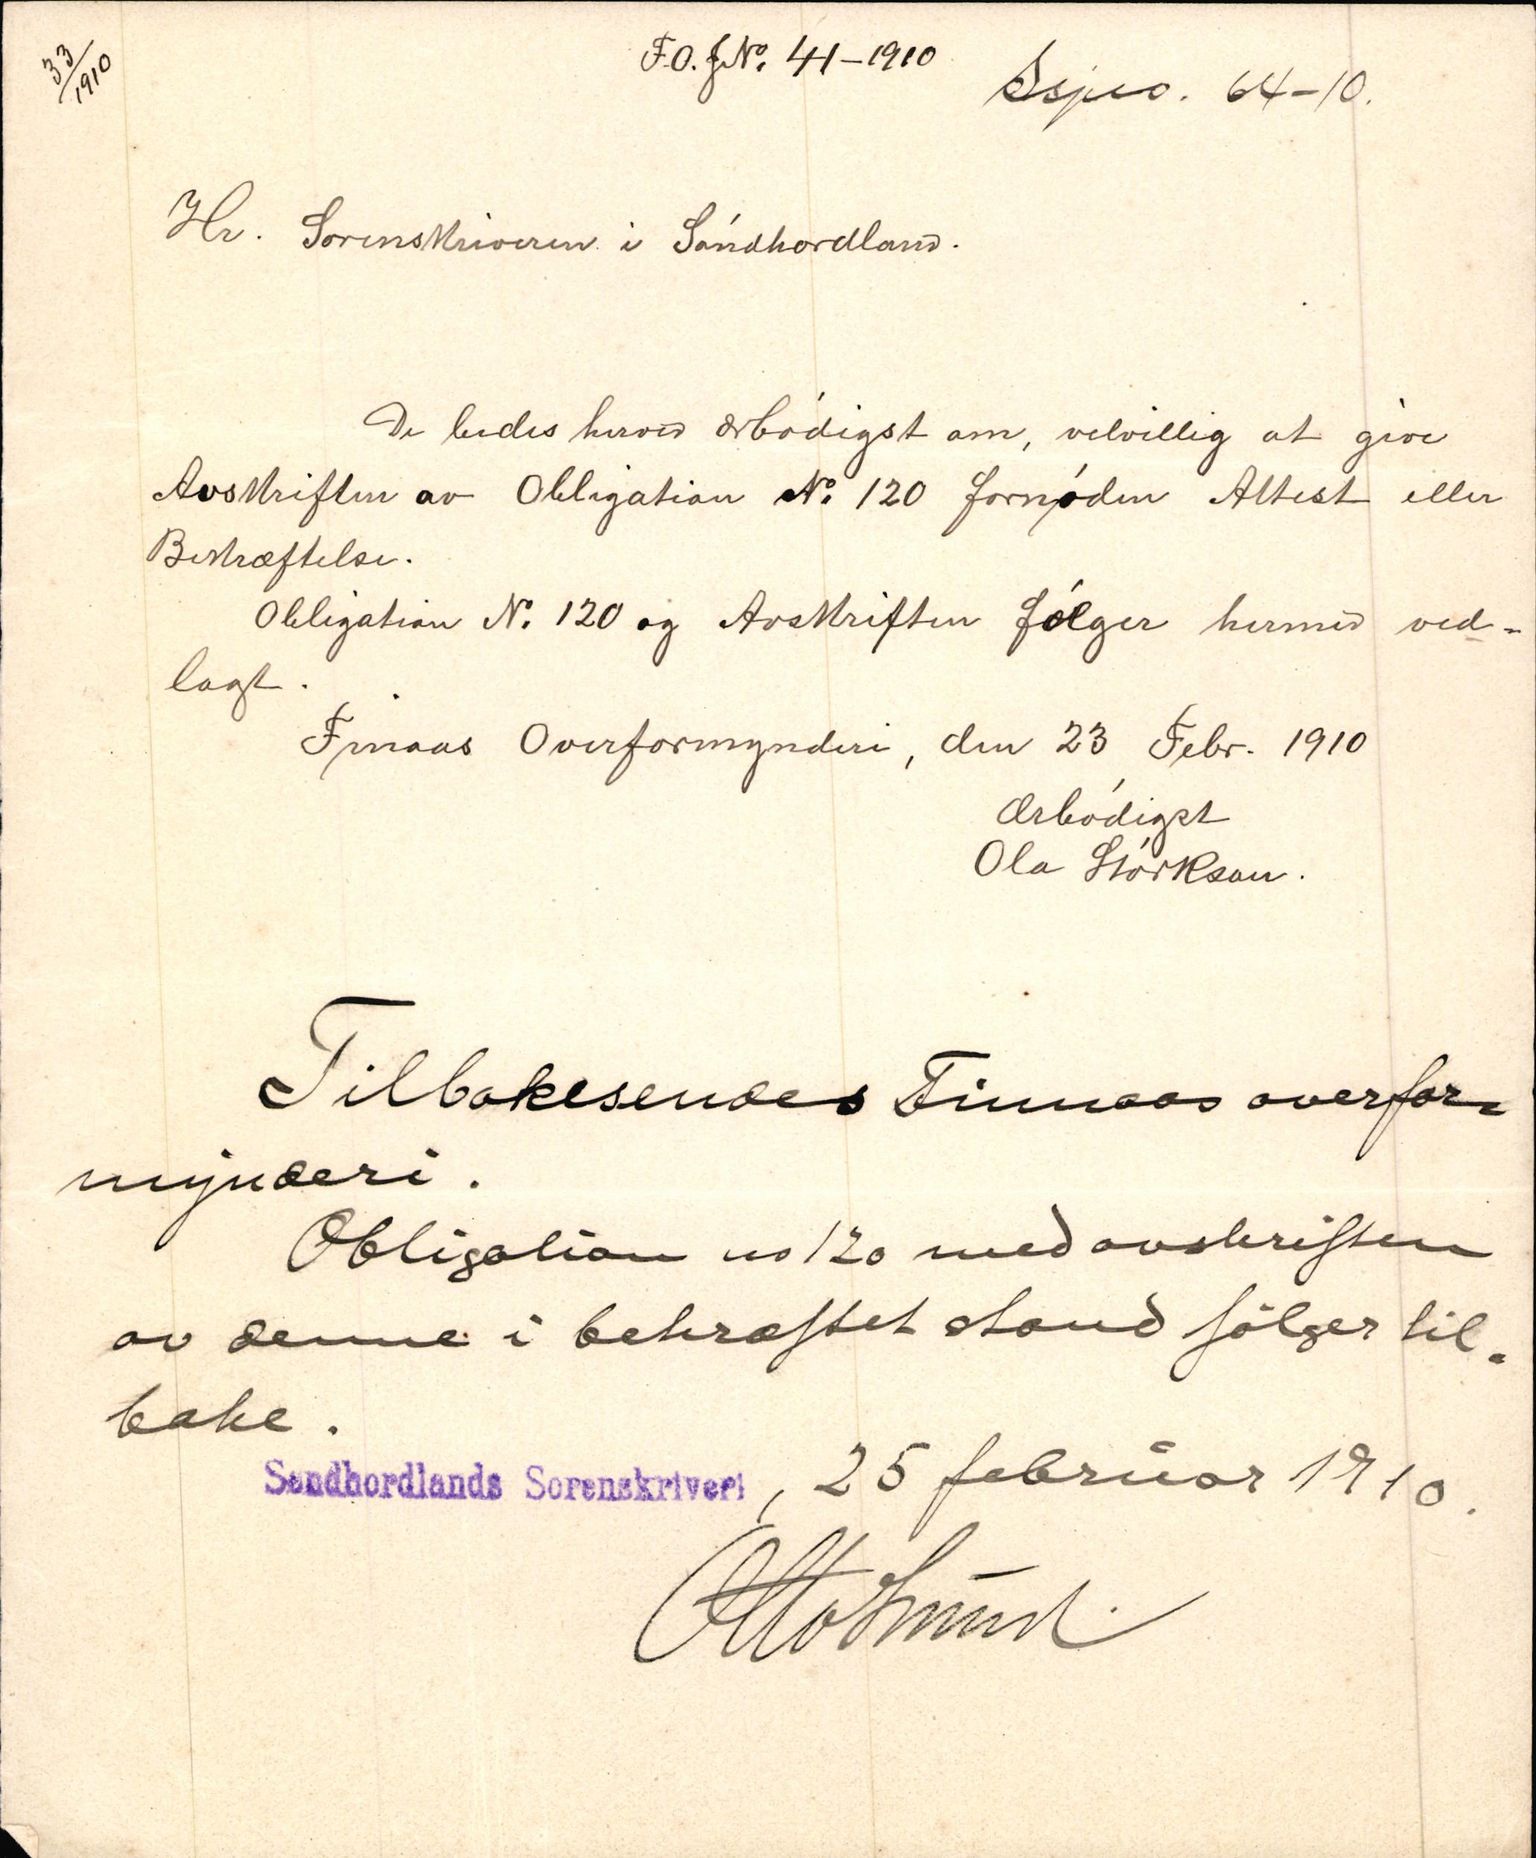 33/1910
F.O.J.No. 41-1910
Ssjno. 64-10.
Hr. Sorenskriveren i Søndhordland.
De bedes herved ærbødigst om, velvillig at give
Avskriften av Obligation No. 120 fornøden Attest eller
Bekræftelse.
Obligation No. 120 og Avskriften følger hermed ved-
lagt.
Finaas Overformynderi, den 23 Febr. 1910
Ærbødigst
Ola Størkson.
Tilbakesendes Finnaas overfor-
mynderi.
Obligation no 120 med avskriften
av denne i bekræftet stand følger til-
bake.
Søndhordlands Sorenskriveri, 25 februar 1910.
Otto